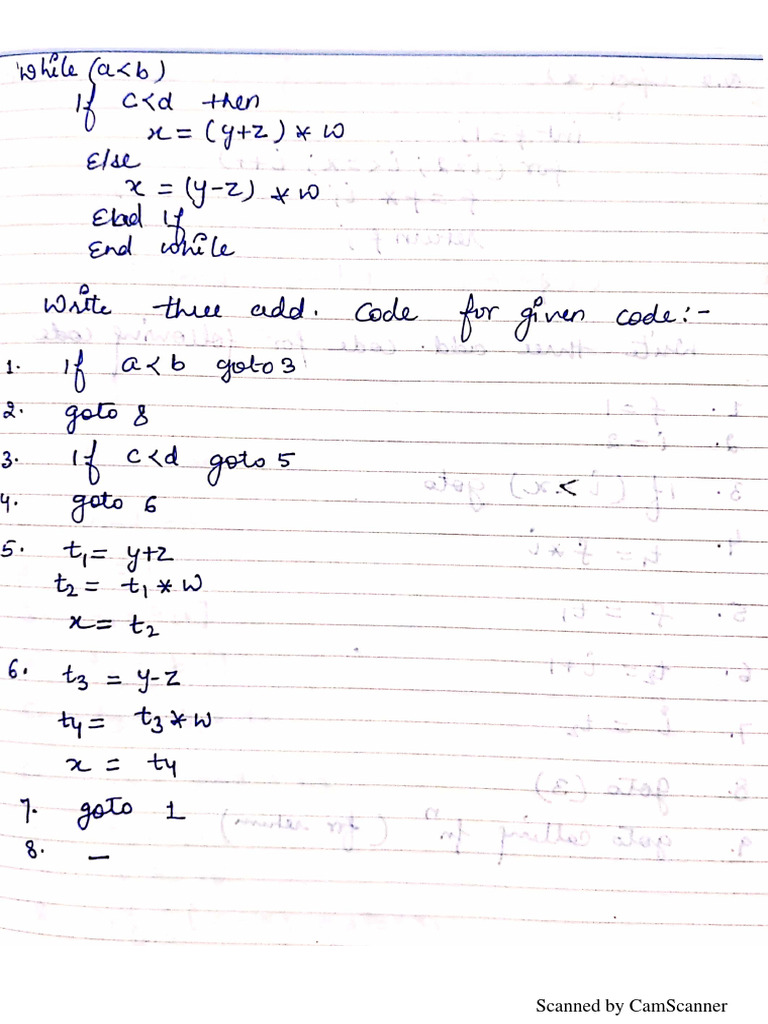 while (a<b)
If c<d then
x = (y+z) * w
Else
x = (y-z) * w
End If
End while
Write three add. code for given code:-
1. if a<b goto 3
2. goto 8
3. If c<d goto 5
4. goto 6
5. t1 = y+z
t2 = t1 * w
x = t2
6. t3 = y-z
t4 = t3 * w
x = t4
7. goto 1
8. —
Scanned by CamScanner